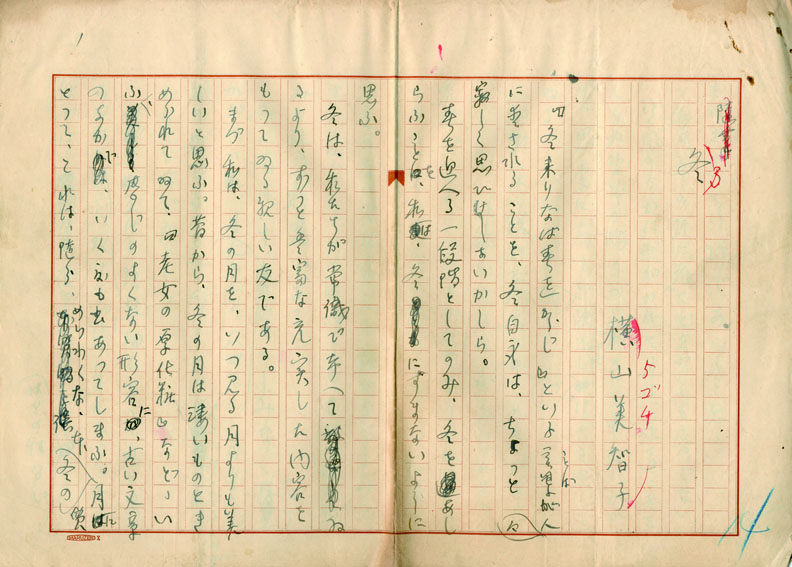 隨筆
冬
3
横山美智子
5ゴチ
「冬来りなば春遠からじ」といふ言葉が人
に愛されることを、冬自身は、ちょっと
寂しく思ひはしないかしら。
春を迎へる一段階としてのみ、冬をあし
らふことを、私は、冬にすまないように
思ふ。
冬は、私たちが常識で考へて
るより、ずっと豊富な充実した内容を
もってゐる親しい友である。
まづ私は、冬の月を、いつみる月よりも美
しいと思ふ。昔から、冬の月は凄いものとき
められてゐて、「老女の厚化粧」などゝい
ふ、感じのよくない形容に、古い文章
のなかで、いく度も出あってしまふ。月に
とって、これは、随分、めいわくな、
(冬の
14